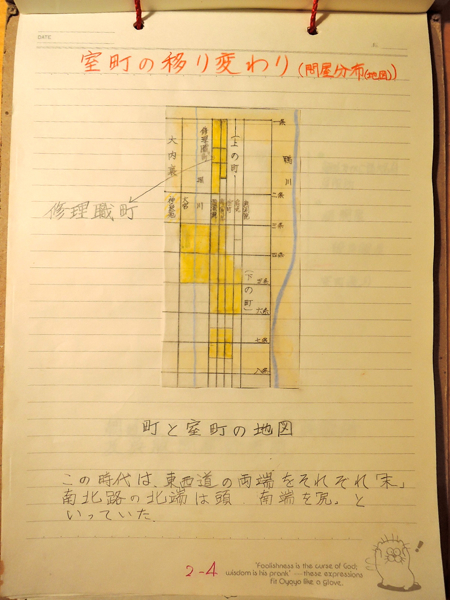 DATE
室町の移り変わり(問屋分布(地図))
一条
大内裏
修理職
(上の町)
鴨川
堀川
修理職町
二条
大宮
三条
四条
(下の町)
五条
六条
七条
八条
町と室町の地図
この時代は、東西道の両端をそれぞれ「末」
南北路の北端は頭 南端を尻、と
いっていた
2-4
"Foolishness is the curse of God;
wisdom is his prank" — these expressions
fit Oyayo like a glove.